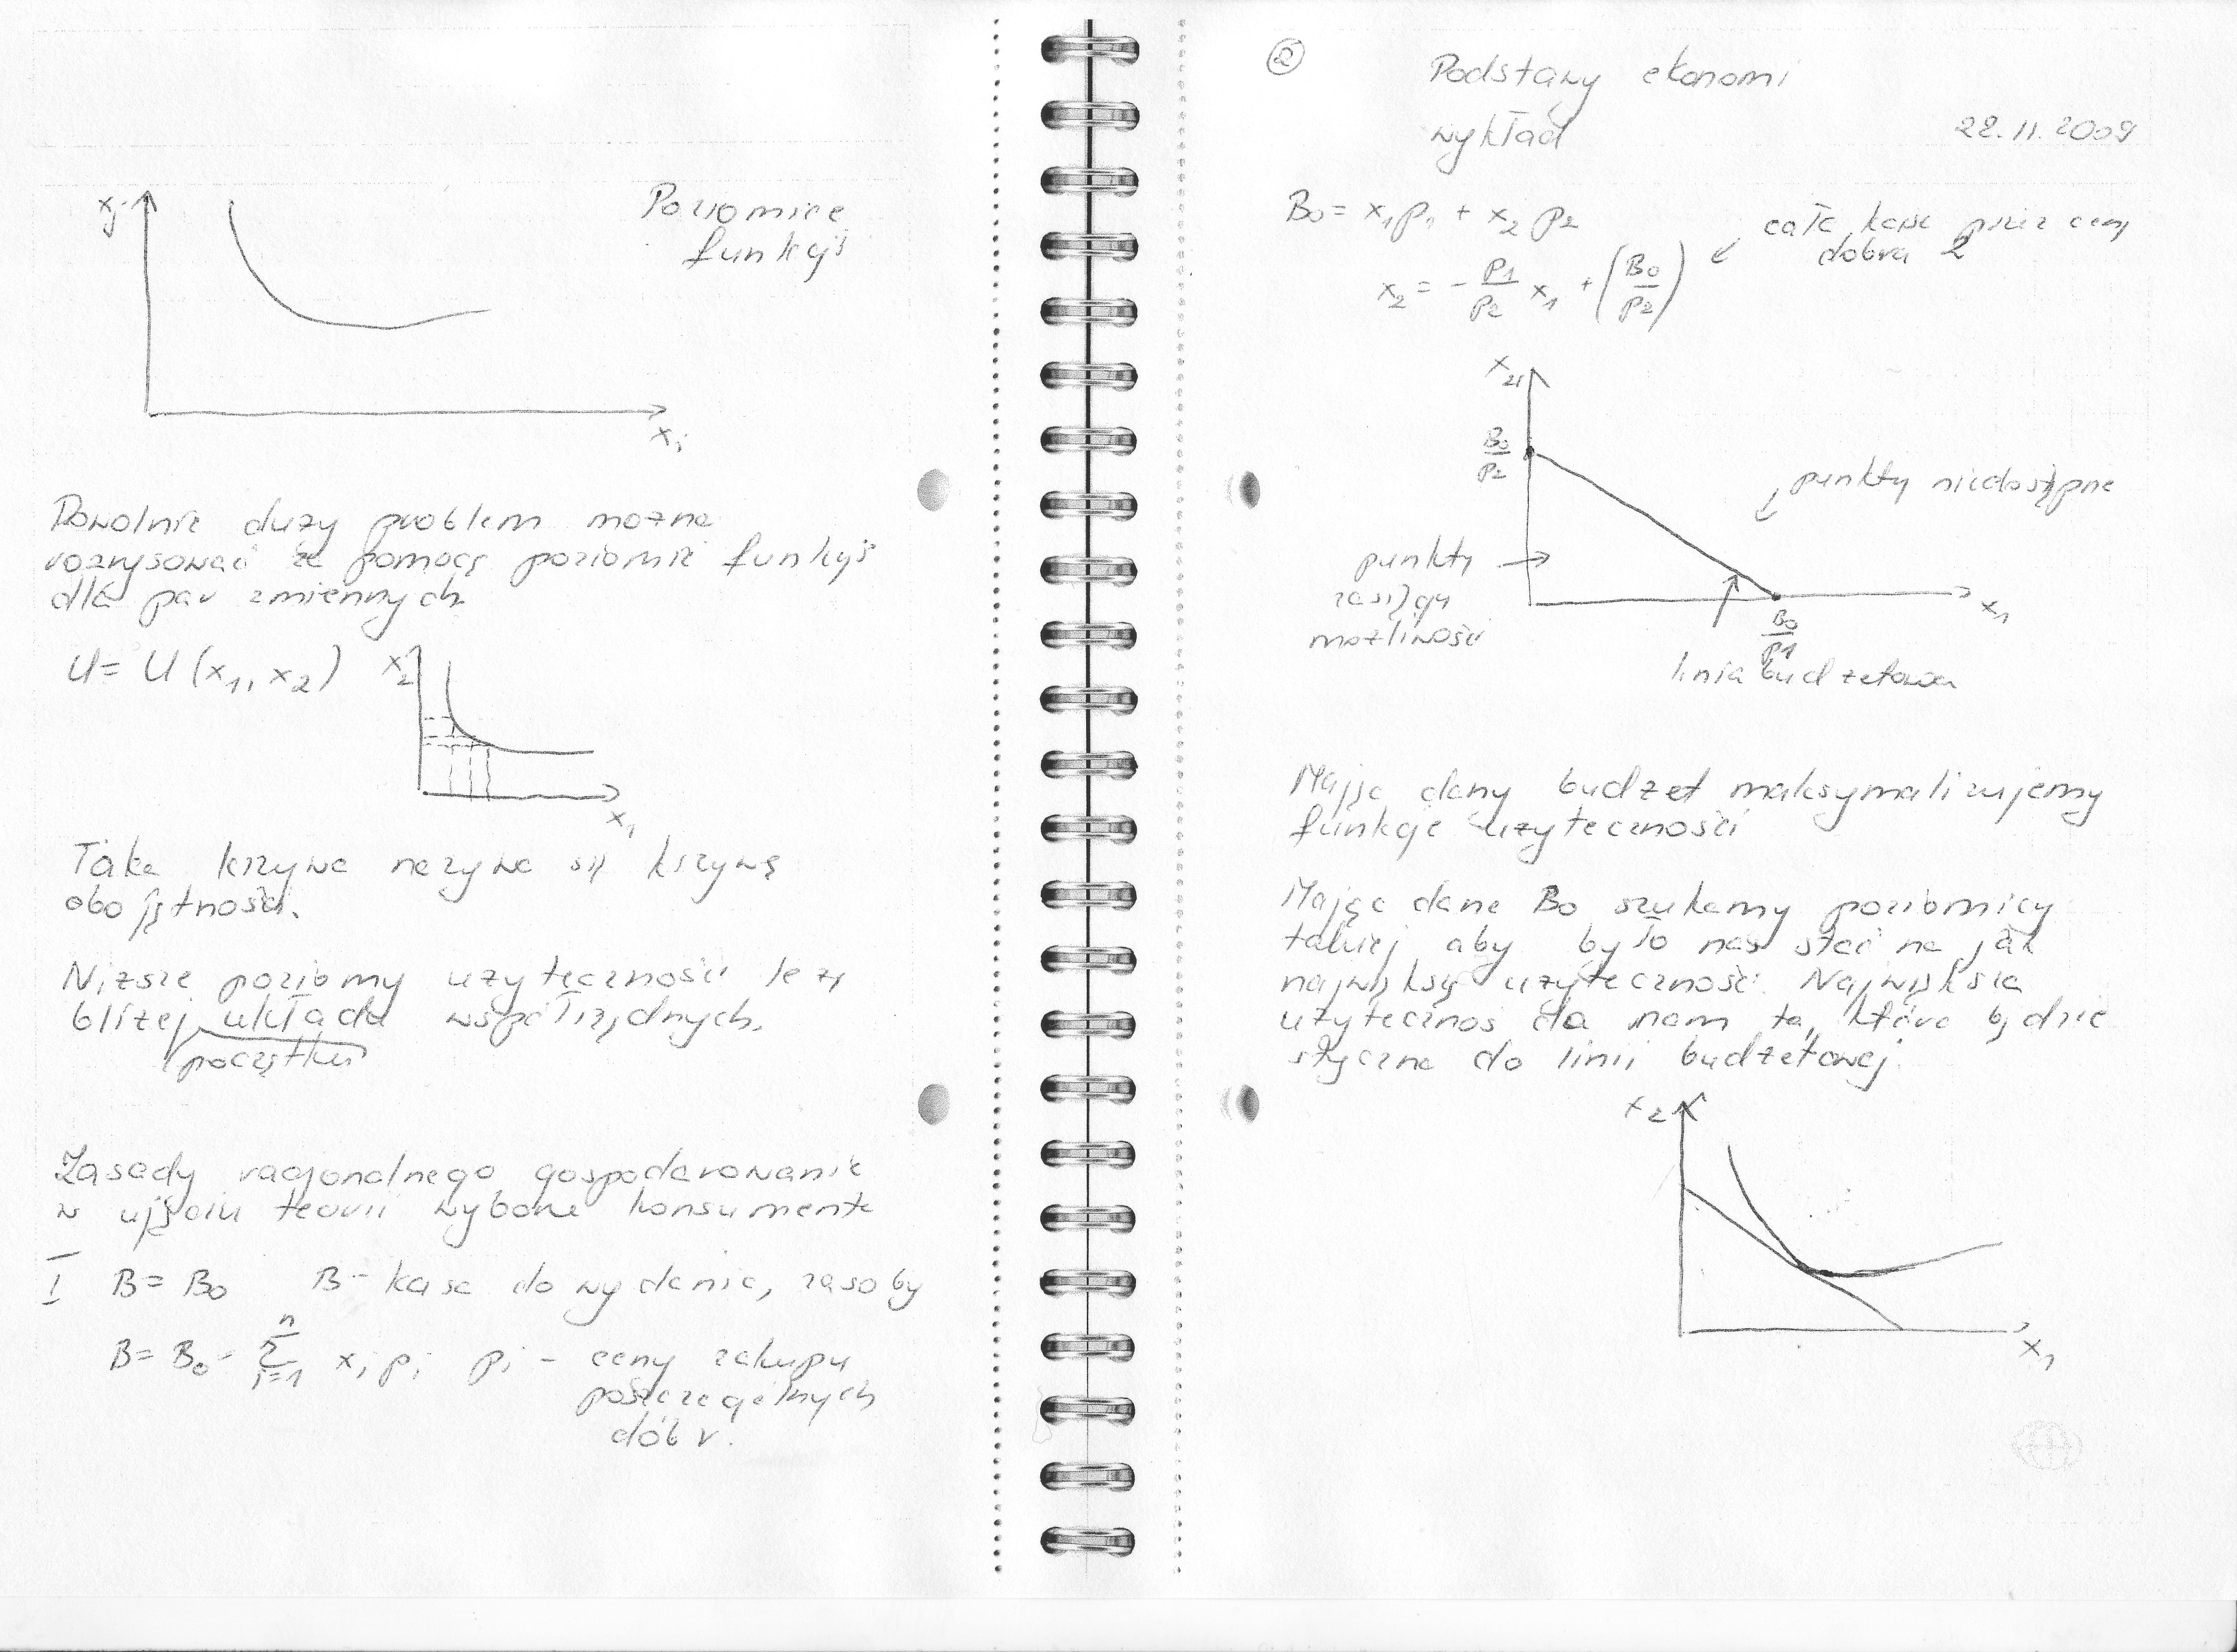 xj
Poziomice
funkcji
xi
Dowolnie duży problem można
rozrysować za pomocą poziomic funkcji
dla par zmiennych
U = U (x₁, x₂)
x₂
x₁
Taka krzywa nazywa się kszywą
obojętności.
Niższe poziomy użyteczności leżą
bliżej układu współrzędnych.
początku
Zasady racjonalnego gospodarowania
w ujęciu teorii wyboru konsumenta
I B = B₀ B - kasa do wydania, zasoby
B = B₀ - n Σ i=1 xi pi pi - ceny zakupu
poszczególnych
dóbr.
②
Podstawy ekonomi
wykład
22.11.2009
B₀ = x₁p₁ + x₂p₂
cała kasa przez ceny
dobra 2
x₂ = - p₁/p₂ x₁ + (B₀/p₂)
x₂
B₀/p₂
punkty niedostępne
punkty
zasięgu
możliwości
x₁
B₀/p₁
linia budżetowa
Mając dany budżet maksymalizujemy
funkcje użyteczności
Mając dane B₀ szukamy poziomicy
takiej aby było nas stać na jak
największą użyteczność. Największa
użytecznoś da nam ta, która będzie
styczna do linii budżetowej.
x₂
x₁